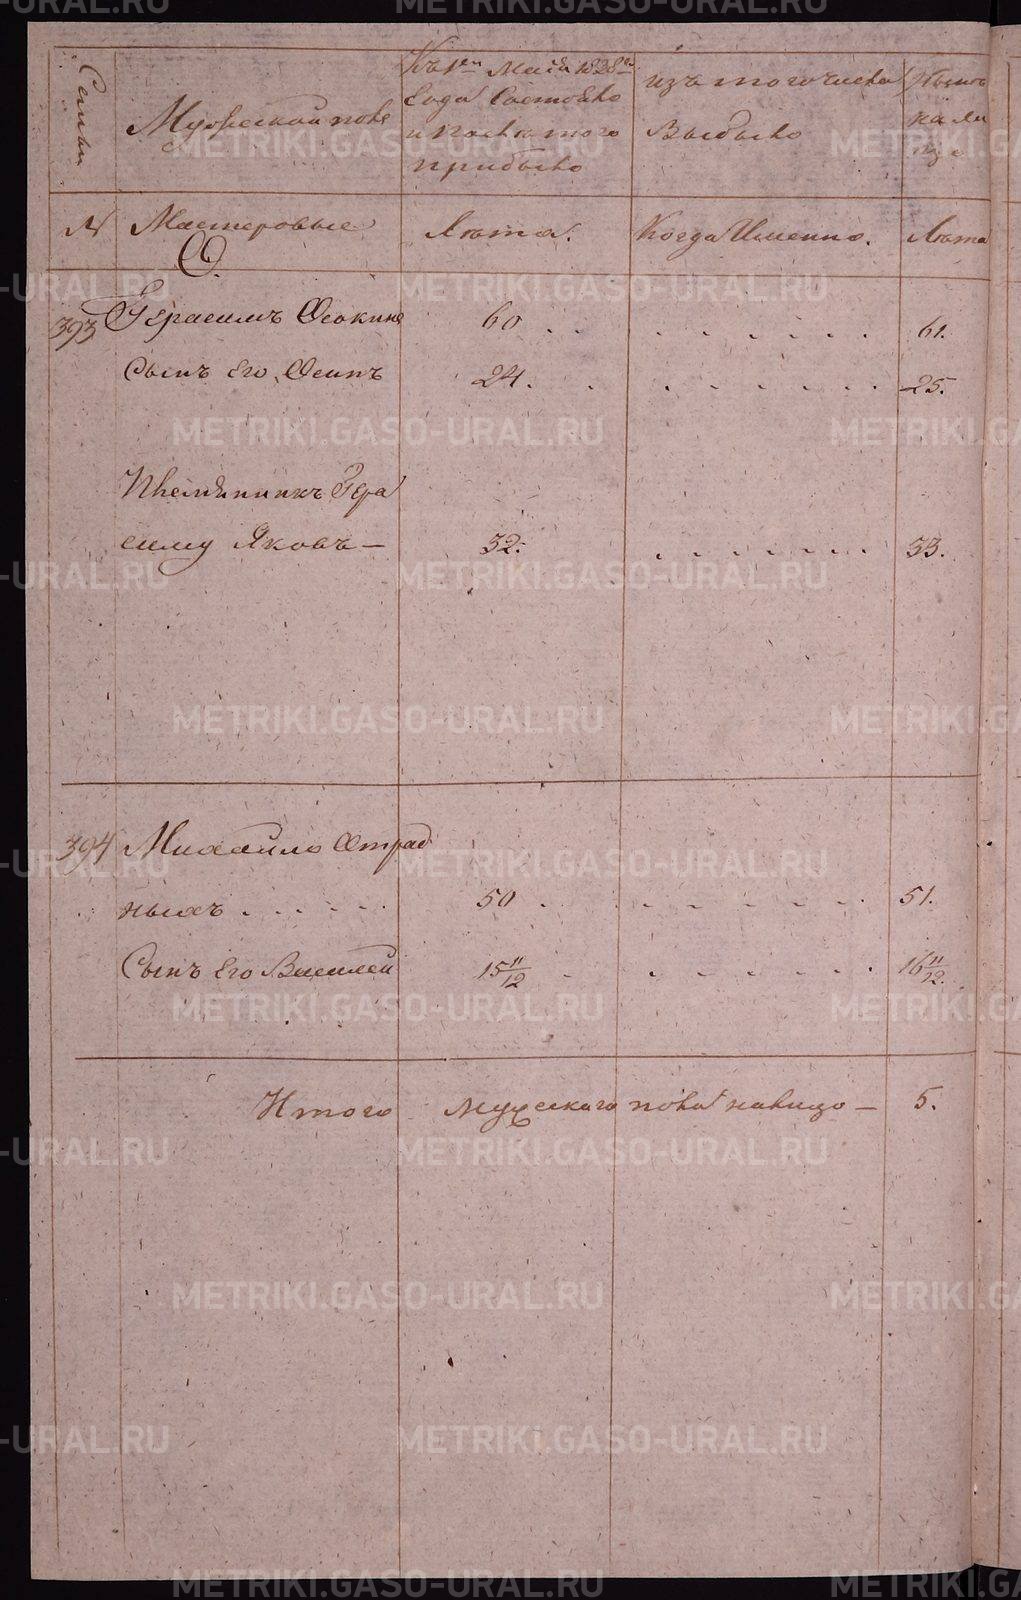 Семьи
Мужеской полъ
Къ 1ен Маія 1838го
Года Состояло
и после того
прибыло
изъ того числа
Выбыло
Ныне
на ли
цо
№
Мастеровые
Лѣта.
Когда Именно.
Лѣта
О.
393 Герасимъ Осокинъ 60 . . . . . . . . 61.
Сынъ Его, Осипъ 24. . . . . . . . 25.
Племянникъ Гера
симу Яковъ — 32. . . . . . . . 33.
394 Михайло Отрад
ныхъ . . . . . . 50 . . . . . . . . 51.
Сынъ Его Василей 15 11/12 . . . . . . . 16 11/12.
Итого мужескаго пола налицо — 5.
METRIKI.GASO-URAL.RU